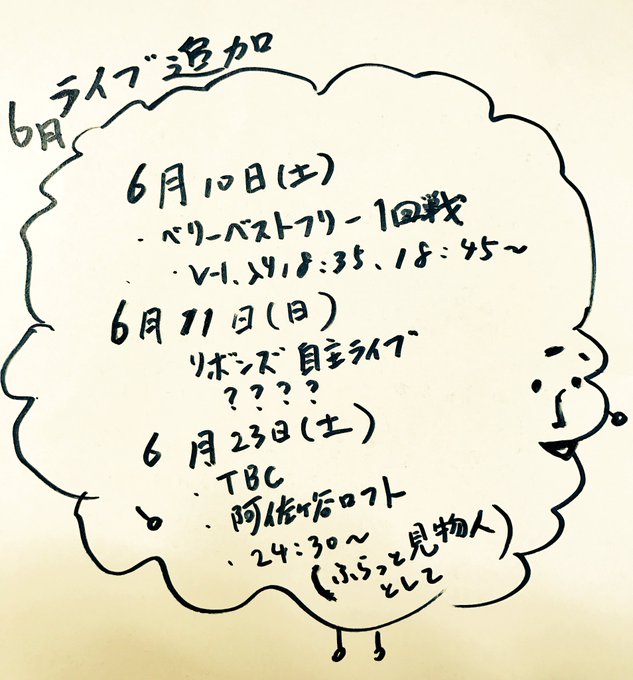 6月ライブ追加
6月10日(土)
・ベリーベストフリー1回戦
・V-1、入り18:35、18:45〜
6月11日(日)
リボンズ自主ライブ
????
6月23日(土)
・TBC
・阿佐ヶ谷ロフト
・24:30〜
(ふらっと見物人
として)